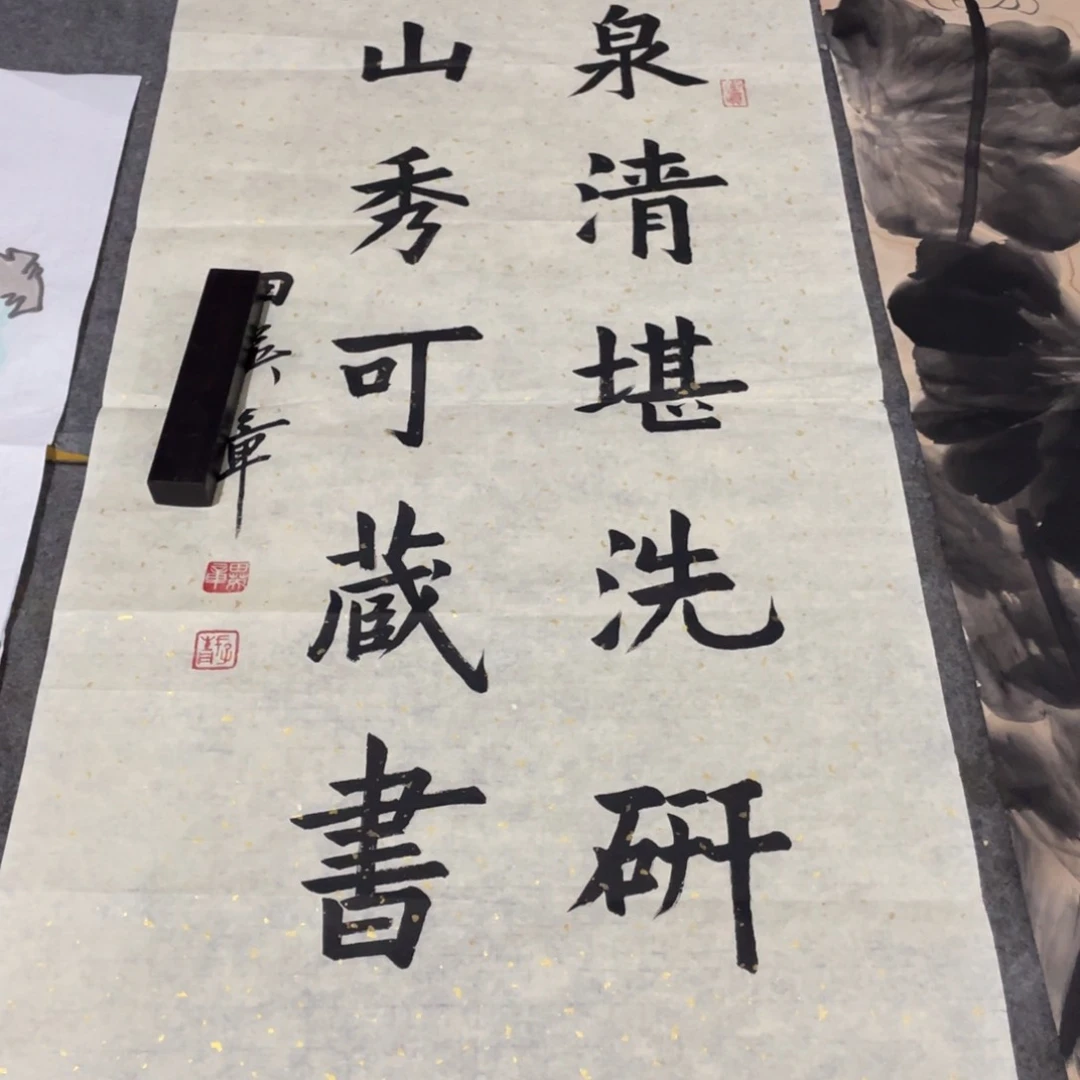 泉清堪洗研
山秀可蔵書
章